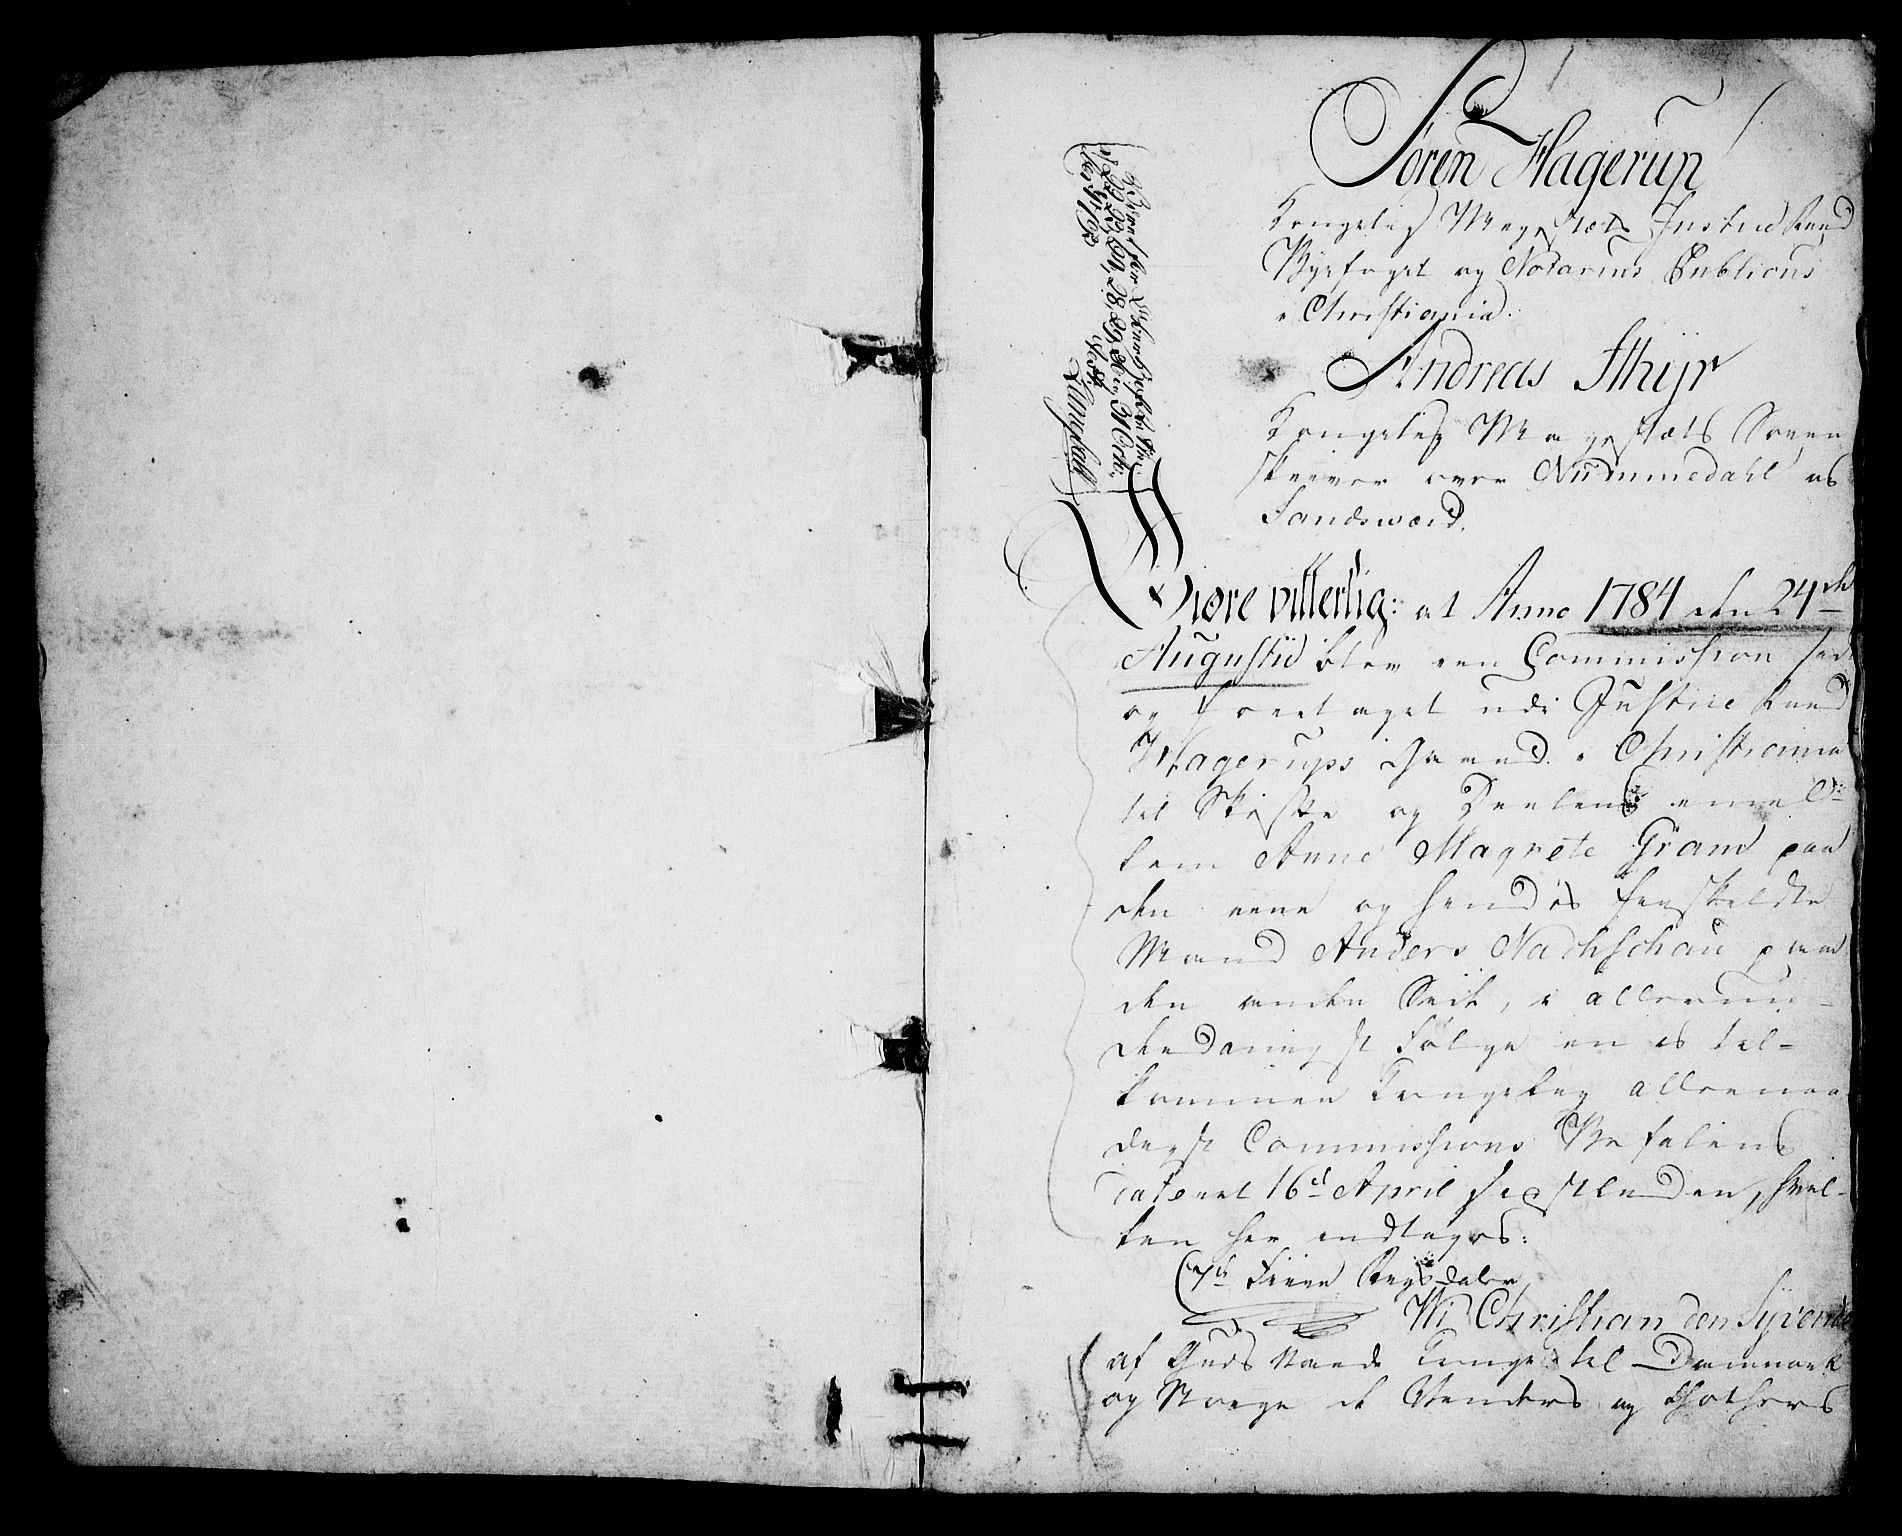 Søren Hagerup
Kongelig Mayestæts Justice Raad
Byefoget og Notarius Publicus
i Christiania.
Andreas Thyr
Kongelig Mayestæts Soren
skriver over Nummedahl og
Sandsværd.
Giøre vitterlig: at Anno 1784 den 24de
Augustii blev een Commission sadt
og foretaget udi Justice Raad
Hagerups Gaard i Christiania
til Skifte og Deeling imel
lem Anne Magrete Gram paa
den eene og hendes fraskildte
Mand Anders Nachschau paa
den anden Side, i allerun-
derdanigst Følge en os til-
kommen Kongelig allernaa
digst Commissions Befaling
dateret 16d April sidstleden, hvil-
ken her indtages:
Fiire Rigsdaler
Wi Christian den Syvende
af Guds Naade Konge til Danmark
og Norge de Venders og Gothers